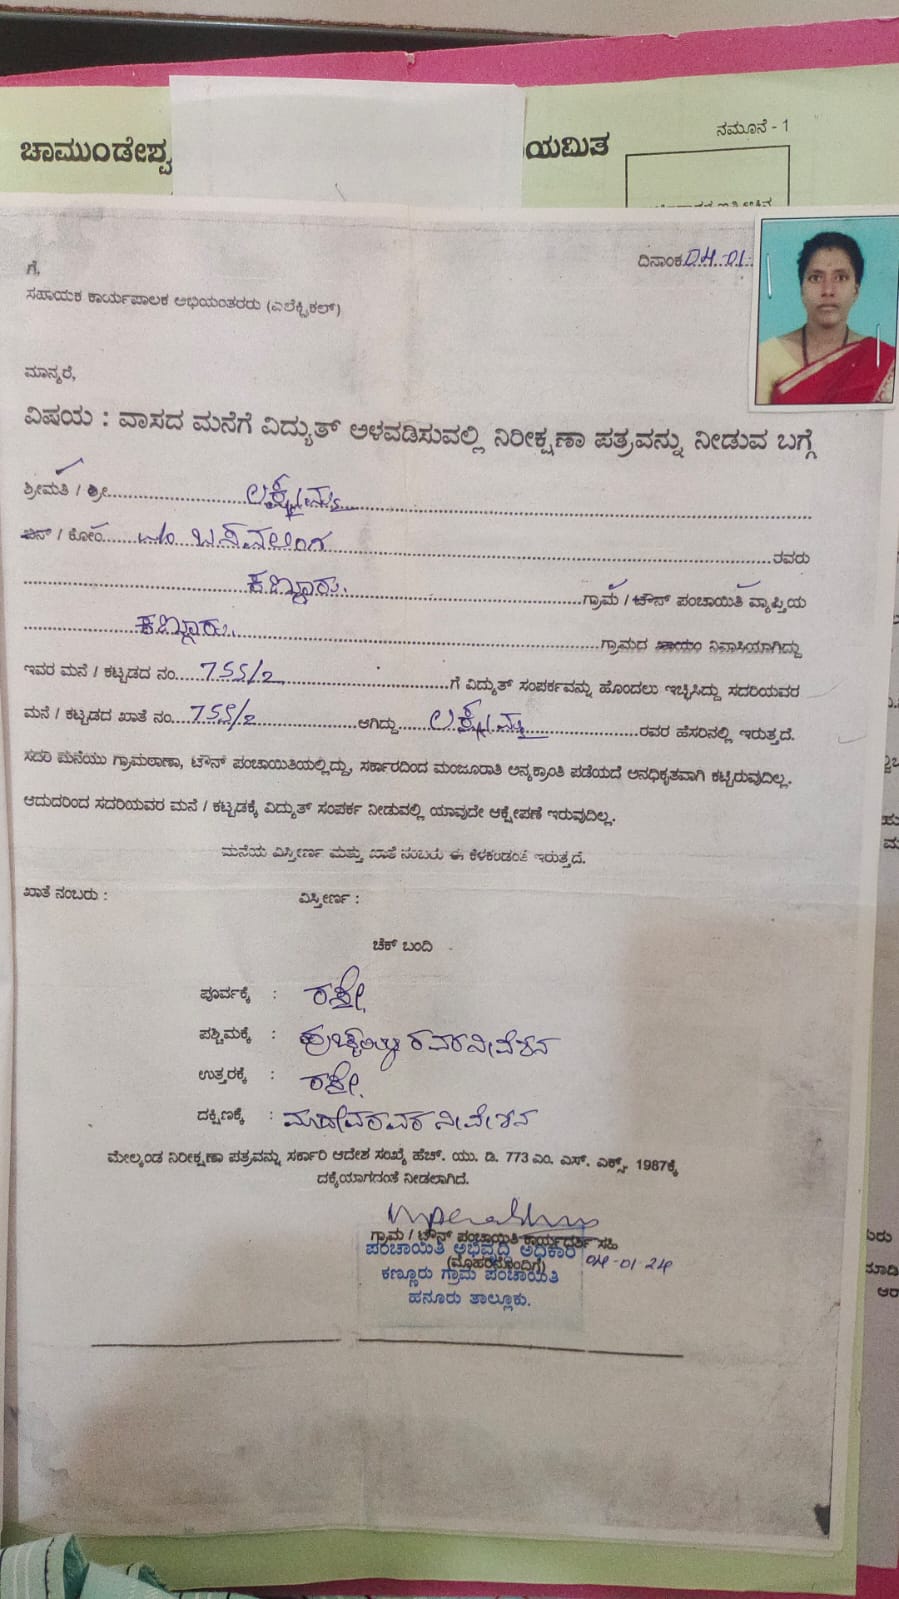 ನಮೂನೆ - 1
ಚಾಮುಂಡೇಶ್ವ ಯಮಿತ
ದಿನಾಂಕ 04.01.
ಗೆ,
ಸಹಾಯಕ ಕಾರ್ಯಪಾಲಕ ಅಭಿಯಂತರರು (ಎಲೆಕ್ಟ್ರಿಕಲ್)
ಮಾನ್ಯರೆ,
ವಿಷಯ : ವಾಸದ ಮನೆಗೆ ವಿದ್ಯುತ್ ಅಳವಡಿಸುವಲ್ಲಿ ನಿರೀಕ್ಷಣಾ ಪತ್ರವನ್ನು ನೀಡುವ ಬಗ್ಗೆ
ಶ್ರೀಮತಿ / ಶ್ರೀ ಲಕ್ಷ್ಮಮ್ಮ
ಬಿನ್ / ಕೋಂ ಬಸವಲಿಂಗ ರವರು
ಕಣ್ಣೂರು. ಗ್ರಾಮ / ಟೌನ್ ಪಂಚಾಯಿತಿ ವ್ಯಾಪ್ತಿಯ
ಕಣ್ಣೂರು. ಗ್ರಾಮದ ಖಾಯಂ ನಿವಾಸಿಯಾಗಿದ್ದು
ಇವರ ಮನೆ / ಕಟ್ಟಡದ ನಂ. 755/2 ಗೆ ವಿದ್ಯುತ್ ಸಂಪರ್ಕವನ್ನು ಹೊಂದಲು ಇಚ್ಛಿಸಿದ್ದು ಸದರಿಯವರ
ಮನೆ / ಕಟ್ಟಡದ ಖಾತೆ ನಂ. 755/2 ಆಗಿದ್ದು ಲಕ್ಷ್ಮಮ್ಮ ರವರ ಹೆಸರಿನಲ್ಲಿ ಇರುತ್ತದೆ.
ಸದರಿ ಮನೆಯು ಗ್ರಾಮಠಾಣಾ, ಟೌನ್ ಪಂಚಾಯಿತಿಯಲ್ಲಿದ್ದು, ಸರ್ಕಾರದಿಂದ ಮಂಜೂರಾತಿ ಅನ್ಯಕ್ರಾಂತಿ ಪಡೆಯದೆ ಅನಧಿಕೃತವಾಗಿ ಕಟ್ಟಿರುವುದಿಲ್ಲ.
ಆದುದರಿಂದ ಸದರಿಯವರ ಮನೆ / ಕಟ್ಟಡಕ್ಕೆ ವಿದ್ಯುತ್ ಸಂಪರ್ಕ ನೀಡುವಲ್ಲಿ ಯಾವುದೇ ಆಕ್ಷೇಪಣೆ ಇರುವುದಿಲ್ಲ.
ಮನೆಯ ವಿಸ್ತೀರ್ಣ ಮತ್ತು ಖಾತೆ ನಂಬರು ಈ ಕೆಳಕಂಡಂತೆ ಇರುತ್ತದೆ.
ಖಾತೆ ನಂಬರು : ವಿಸ್ತೀರ್ಣ :
ಚೆಕ್ ಬಂದಿ
ಪೂರ್ವಕ್ಕೆ : ರಸ್ತೇ
ಪಶ್ಚಿಮಕ್ಕೆ : ರವರ ನಿವೇಶನ
ಉತ್ತರಕ್ಕೆ : ರಸ್ತೇ
ದಕ್ಷಿಣಕ್ಕೆ : ನಿವೇಶನ
ಮೇಲ್ಕಂಡ ನಿರೀಕ್ಷಣಾ ಪತ್ರವನ್ನು ಸರ್ಕಾರಿ ಆದೇಶ ಸಂಖ್ಯೆ ಹೆಚ್. ಯು. ಡಿ. 773 ಎಂ. ಎಸ್. ಎಕ್ಸ್. 1987ಕ್ಕೆ
ದಕ್ಕೆಯಾಗದಂತೆ ನೀಡಲಾಗಿದೆ.
ಗ್ರಾಮ / ಟೌನ್ ಪಂಚಾಯಿತಿ ಕಾರ್ಯದರ್ಶಿ ಸಹಿ
ಪಂಚಾಯಿತಿ ಅಭಿವೃದ್ಧಿ ಅಧಿಕಾರಿ
(ಮೊಹರಿನೊಂದಿಗೆ) 04-01-24
ಕಣ್ಣೂರು ಗ್ರಾಮ ಪಂಚಾಯಿತಿ
ಹನೂರು ತಾಲ್ಲೂಕು.